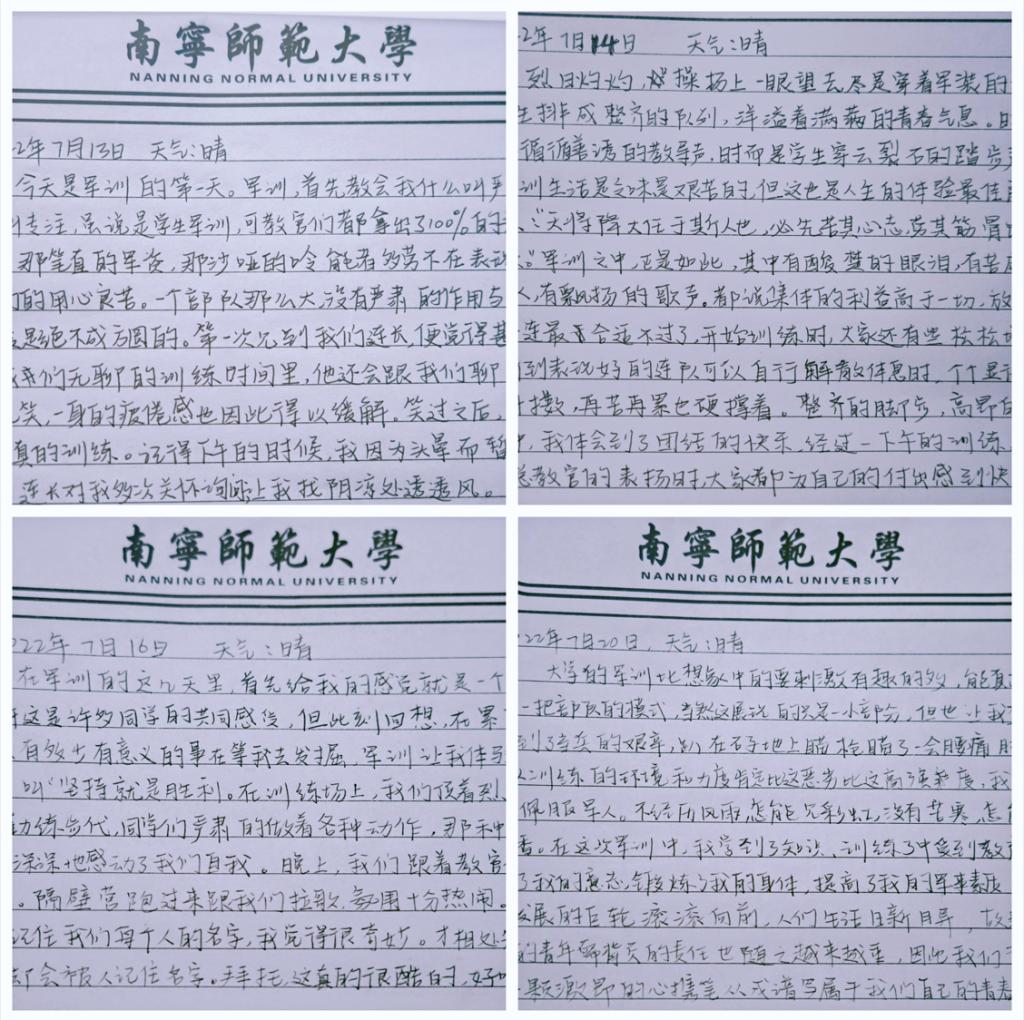 南寧師範大學
NANNING NORMAL UNIVERSITY
2年7月13日 天气:晴
今天是军训的第一天。军训,首先教会我什么叫严
专注,虽说是学生军训,可教官们都拿出了100%的
那笔直的军姿,那沙哑的 能者多劳不在表
的用心良苦。一个部队那么大,没有严肃的作用与
是绝不成方圆的。第一次见到我们连长,便觉得甚
我们无聊的训练时间里,他还会跟我们聊
笑,一身的疲倦感也因此得以缓解。笑过之后,
真的训练。记得下午的时候,我因为头晕而暂
连长对我多次关怀询问,让我找阴凉处透透风。
2年7月14日 天气:晴
烈日灼灼,操场上一眼望去尽是穿着军装的
生排成整齐的队列,洋溢着满满的青春气息。时
循循善诱的教导声,时而是学生穿云裂石的踏步
训生活是乏味是艰苦的,但这也是人生的体验最佳
“天将降大任于斯人也,必先苦其心志,劳其筋骨
”军训之中,正是如此,其中有酸楚的眼泪,有苦
人,有飘扬的歌声。都说集体的利益高于一切,放
连最合适不过了,开始训练时,大家还有些松松
到表现好的连队可以自行解散休息时,个个显
十数,再苦再累也硬撑着。整齐的脚步,高昂的
中,我体会到了团结的快乐,经过一下午的训练
总教官的表扬时,大家都为自己的付出感到快
南寧師範大學
NANNING NORMAL UNIVERSITY
022年7月16日 天气:晴
在军训的这几天里,首先给我的感觉就是一个
这是许多同学的共同感受,但此刻回想,在累
有效步有意义的事在等我去发掘,军训让我体
叫“坚持就是胜利。在训练场上,我们顶着烈
练步伐,同学们严肃的做着各种动作,那种
深深地感动了我们自我。晚上,我们跟着教官
。隔壁营跑过来跟我们拉歌,氛围十分热闹。
记住我们每个人的名字,我觉得很奇妙。才相处
却会被人记住名字。拜托,这真的很酷的,好
南寧師範大學
NANNING NORMAL UNIVERSITY
22年7月20日,天气:晴
大学的军训比想象中的要刺激有趣的多,能真
一把部队的模式,当然这展现的只是一小部分,但也让我
到了当兵的艰辛,趴在石子地上瞄枪瞄了一会腰痛
训练的环境和力度肯定比这恶劣比这高强难度,我
佩服军人。不经历风雨,怎能见彩虹,没有苦寒,怎
香。在这次军训中,我学到了知识、训练了中受到教
了我的意志,锻炼了我的身体,提高了我的军事素质
发展的巨轮滚滚向前,人们生活日新月异,故
的青年肩背负的责任也随之越来越重,因此我们
颗激昂的心携笔从戎谱写属于我们自己的青春